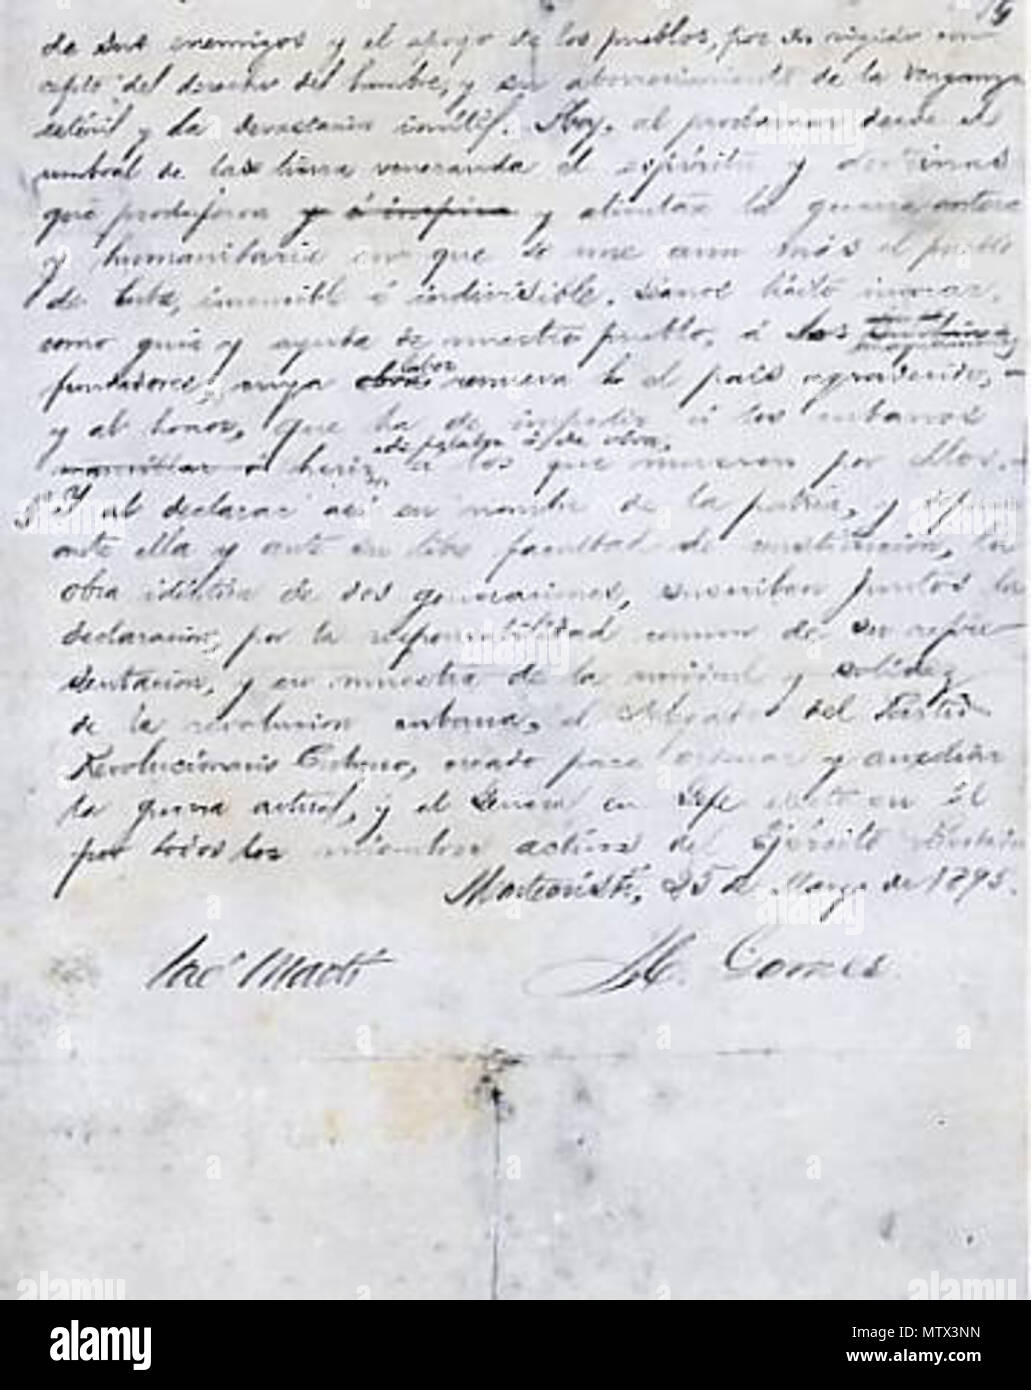 de sus enemigos y el apoyo de los pueblos, por su rígido con
cepto del derecho del hombre, y su aborrecimiento de la venganza
estéril y la devastación inútil. Hoy, al proclamar desde el
umbral de la tierra veneranda el espíritu y doctrinas
que produjeron y alientan la guerra entera
y humanitaria en que se une aun más el pueblo
de Cuba, invencible é indivisible, séanos lícito invocar,
como guía y ayuda de nuestro pueblo, á los magnánimos
fundadores, cuya labor renueva el país agradecido,
y al honor, que ha de impedir á los cubanos
herir, de palabra ó de obra, á los que mueren por ellos.
Y al declarar así en nombre de la patria, y deponer
ante ella y ante su libre facultad de constitución, la
obra idéntica de dos generaciones, suscriben juntos la
declaración, por la responsabilidad común de su repre
sentación, y en muestra de la unidad y solidez
de la revolución cubana, el Delegado del Partido
Revolucionario Cubano, creado para ordenar y auxiliar
la guerra actual, y el General en Jefe electo en él
por todos los miembros activos del Ejército Libertador
Montecristi, 25 de Marzo de 1895.
José Martí M. Gomez
alamy
Image ID: MTX3NN
www.alamy.com